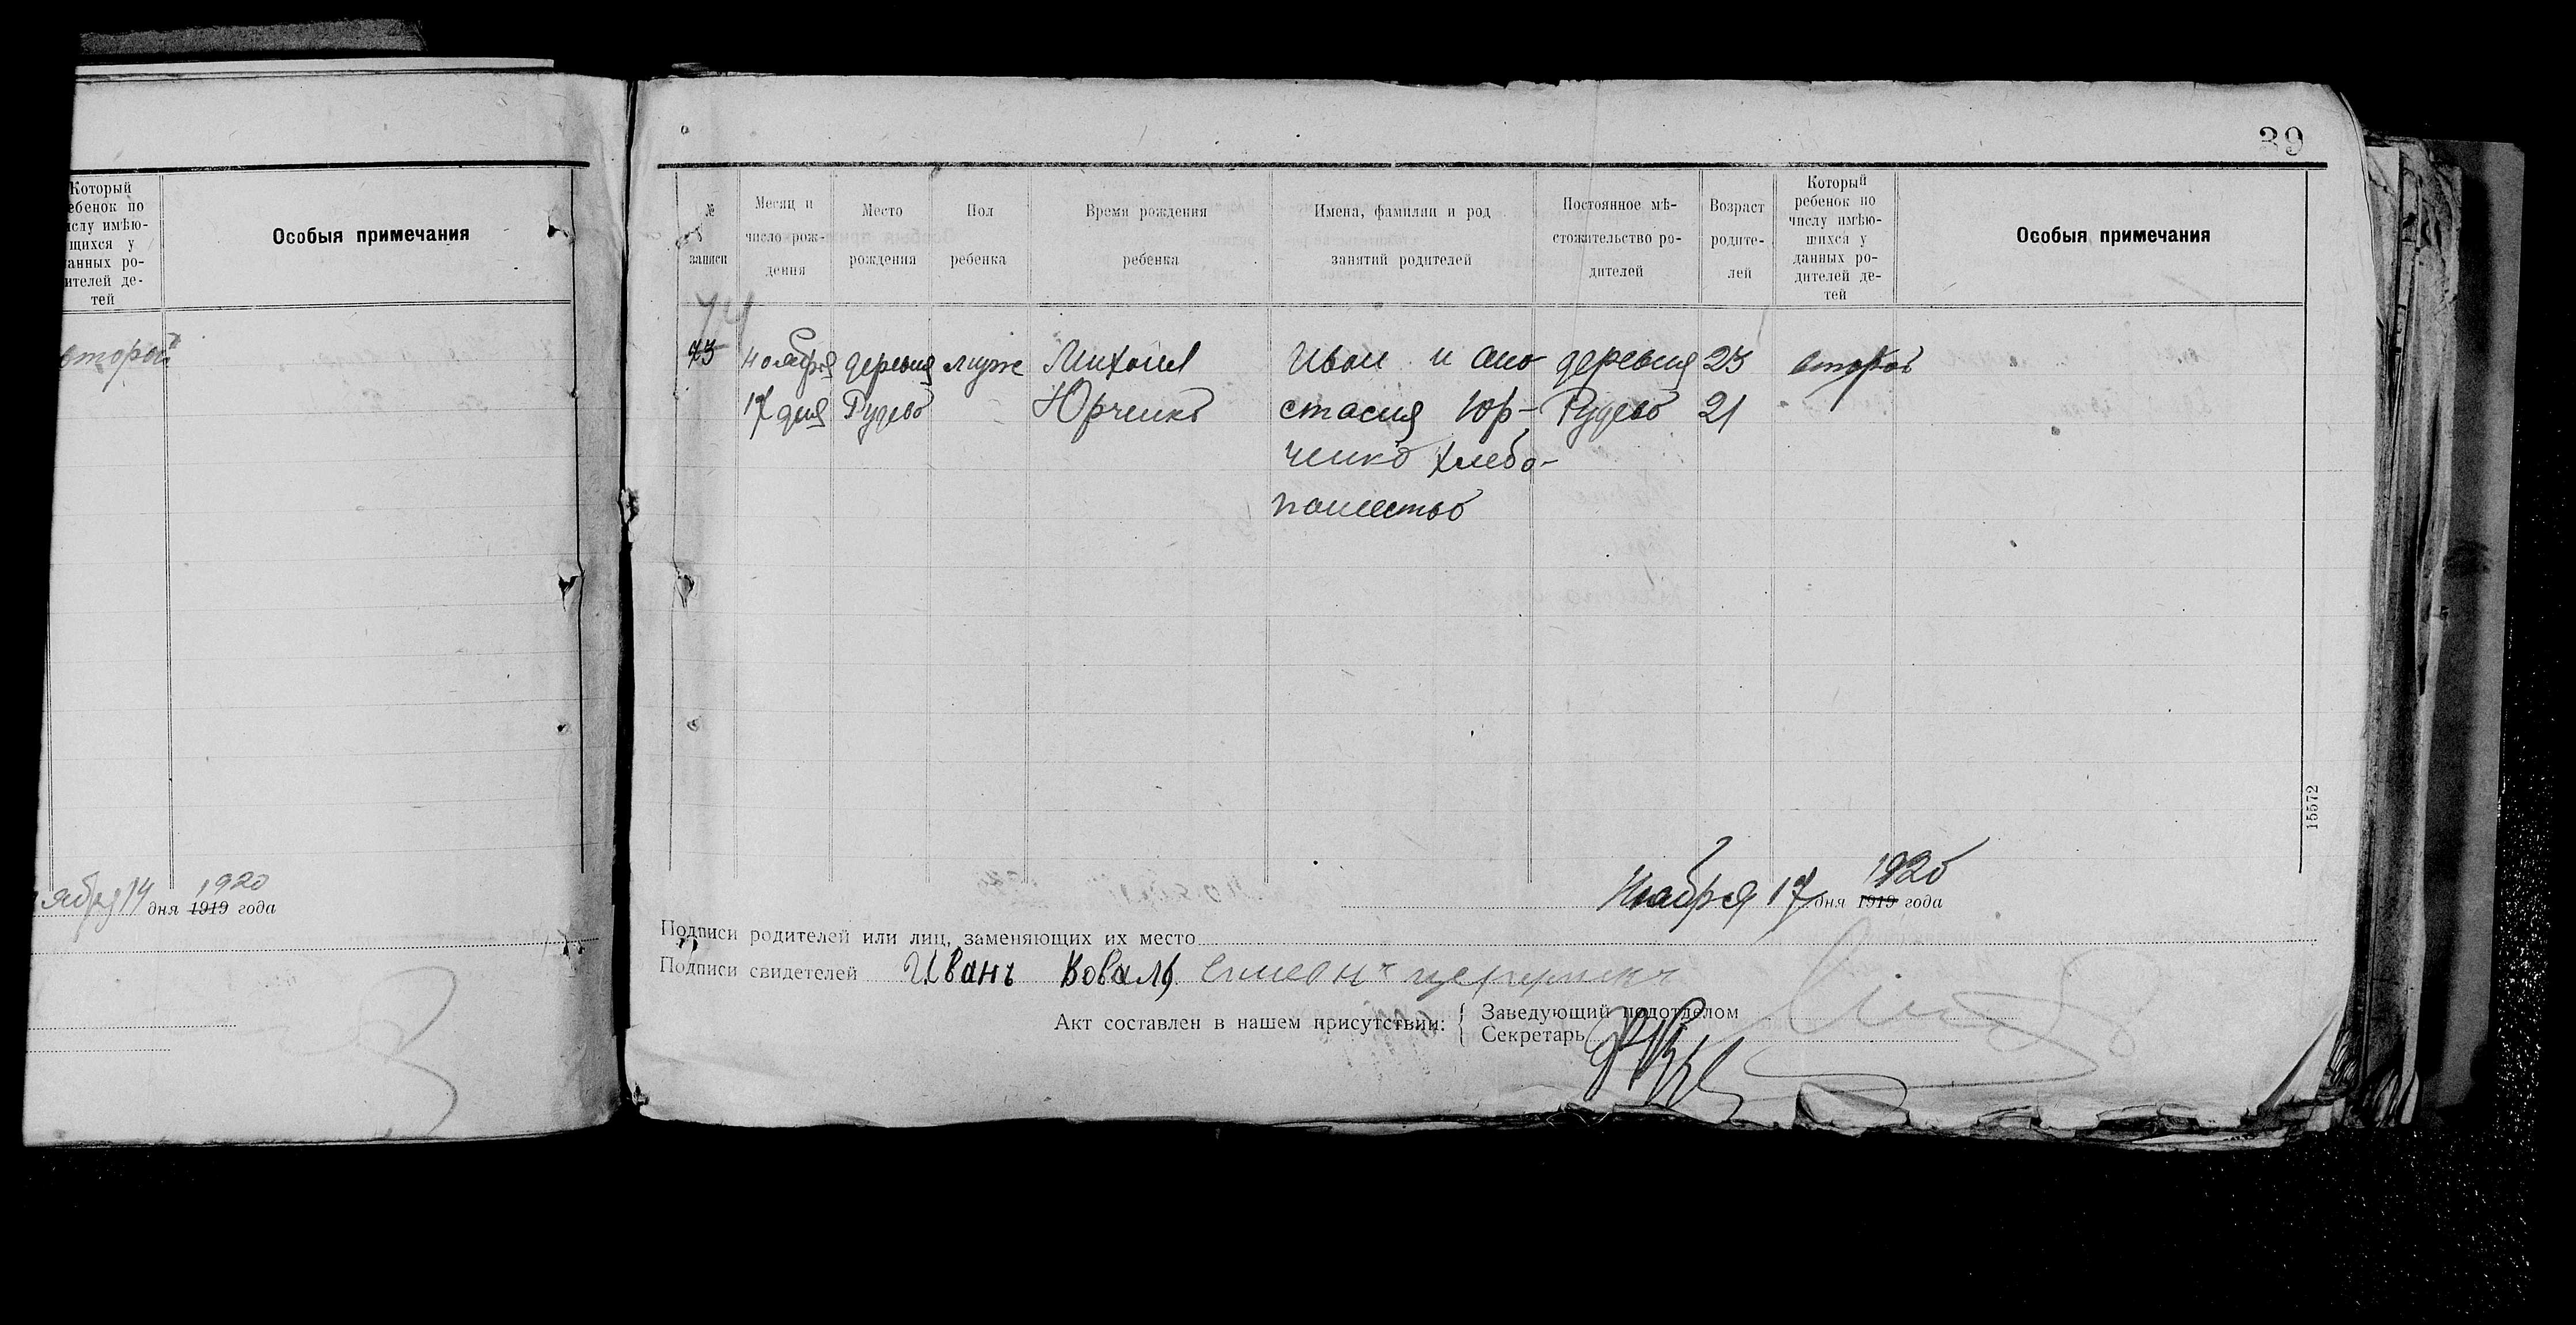 Который
ебенок по
ислу имѣю-
щихся у
анных ро-
ителей де-
тей
Особыя примечания
второй
ября 14 дня 1919 года
1920
39
№
записи
Месяц и
число рож-
дения
Место
рождения
Пол
ребенка
Время рождения
ребенка
Имена, фамилии и род
занятий родителей
Постоянное мѣ-
стожительство ро-
дителей
Возраст
родите-
лей
Который
ребенок по
числу имѣю-
шихся у
данных ро-
дителей де-
тей
Особыя примечания
74
73 ноября деревня муже Михаил Иван и ано деревня 23 второй
17 дня Рудево Юрченко стасия Юр- Рудево 21
ченко хлебо-
пашество
15572
1920
Ноября 17 дня 1919 года
Подписи родителей или лиц, заменяющих их место
Подписи свидетелей Иванъ Коваль
Акт составлен в нашем присутствии: { Заведующий подотделом
Секретарь